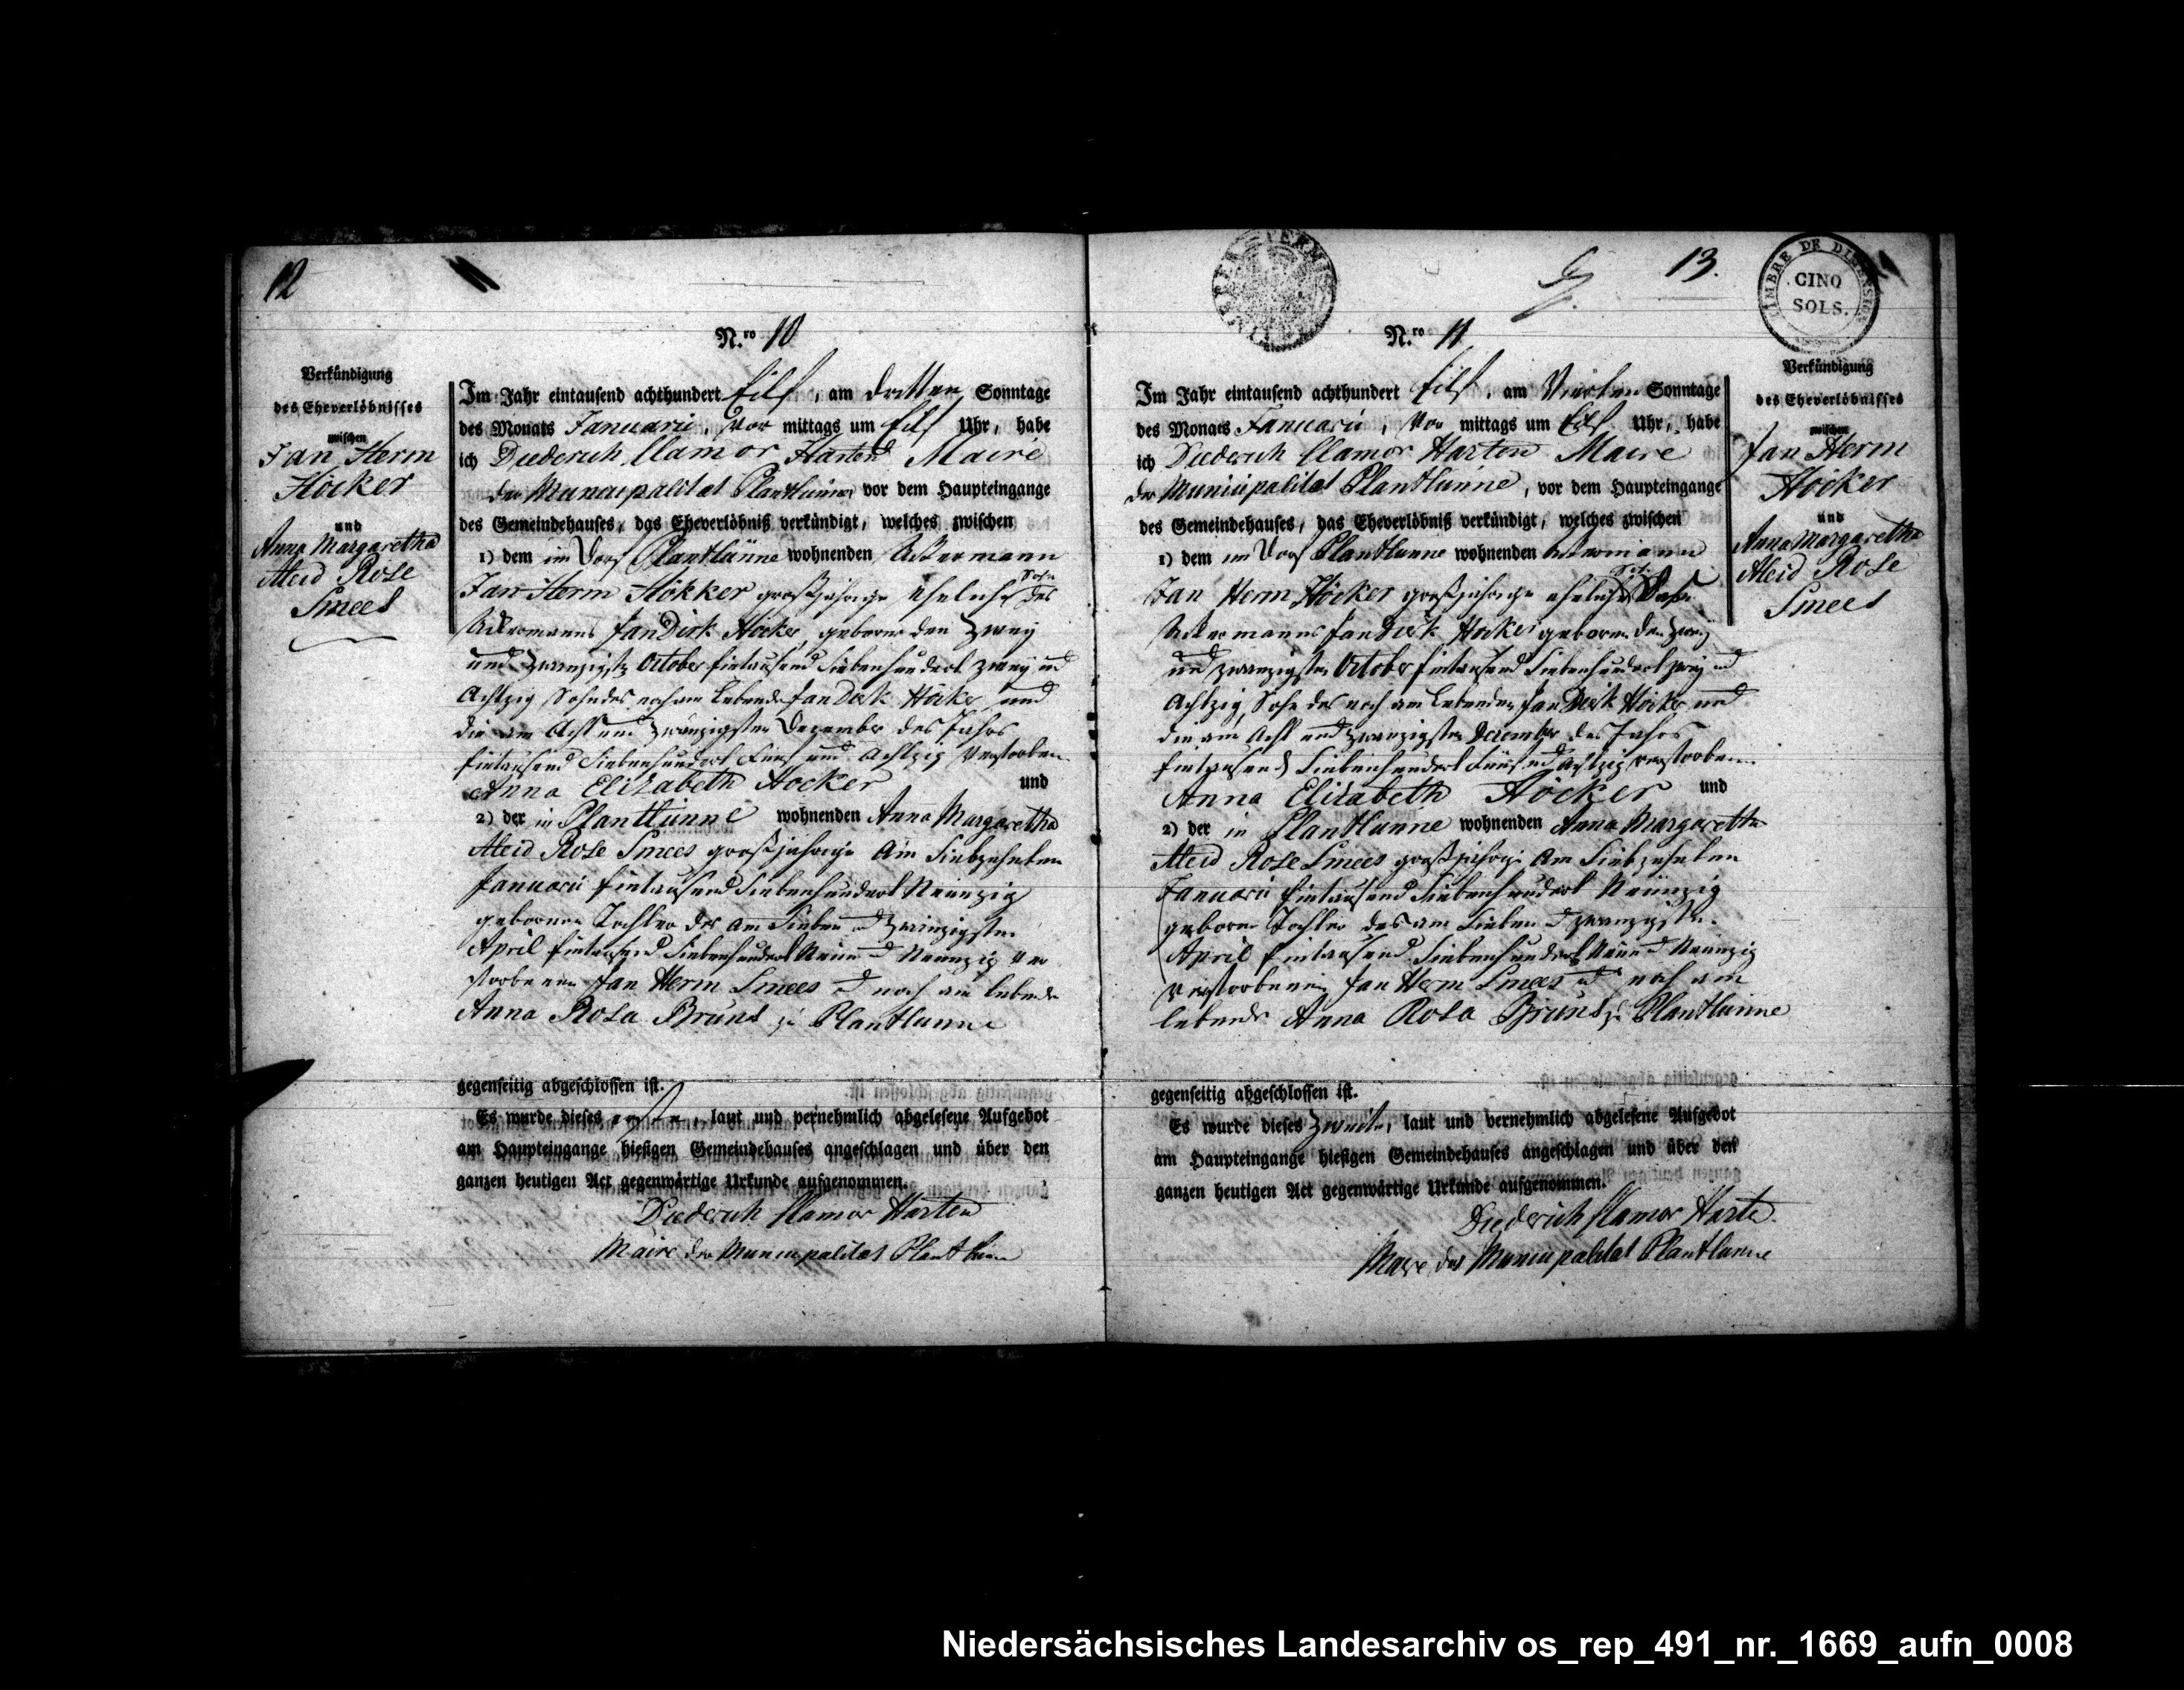 12
N.ro 10
Verkündigung
des Eheverlöbnisses
zwischen
Jan Herm
Höcker
und
Anna Margaretha
Aleid Rose
Smees
Im Jahr eintausend achthundert Eilf, am dritten Sonntage
des Monats Januarii, Vor mittags um Eilf Uhr, habe
ich Diederich Clamor Harten Maire
der Municipalitat Plantlünne, vor dem Haupteingange
des Gemeindehauses, das Eheverlöbniß verkündigt, welches zwischen
1) dem im Dorf Plantlünne wohnenden Ackermann
Jan Herm Hökker großjährige ehelicher Sohn des
Ackermanns Jan Dirk Höcker, geboren den Zwey
und Zwanzigsten October Eintausend Siebenhundert zwey und
Achtzig Sohn des noch am Lebenden Jan Derk Höcker und
die am Acht und Zwanzigsten Dezember des Jahrs
Eintausend Siebenhundert Fünf und Achtzig Verstorbenen
Anna Elizabeth Hocker und
2) der in Plantlünne wohnenden Anna Margaretha
Aleid Rose Smees großjährige Am Siebzehnten
Januarii Eintausend Siebenhundert Neünzig
gebornen Tochter des am Sieben und Zwanzigsten
April Eintausend Siebenhundert Neün und Neunzig ver
storbenen Jan Herm Smees und noch am lebende
Anna Rosa Bruns zu Plantlunne
gegenseitig abgeschlossen ist.
Es wurde dieses erste, laut und vernehmlich abgelesene Aufgebot
am Haupteingange hiesigen Gemeindehauses angeschlagen und über den
ganzen heutigen Act gegenwärtige Urkunde aufgenommen.
Diederich Clamor Harten
Maire der Municipalitat Plantlünne
13.
TIMBRE DE DIMENSION
CINQ
SOLS.
N.ro 11
Verkündigung
des Eheverlöbnisses
zwischen
Jan Herm
Höcker
und
Anna Margaretha
Aleid Rose
Smees
Im Jahr eintausend achthundert Eilf, am Vierten Sonntage
des Monats Januarii, Vor mittags um Eilf Uhr, habe
ich Diederich Clamor Harten Maire
der Municipalitat Plantlünne, vor dem Haupteingange
des Gemeindehauses, das Eheverlöbniß verkündigt, welches zwischen
1) dem im Dorf Plantlunne wohnenden Ackermann
Jan Herm Höcker großjährige ehelicher Sohn
Ackermanns Jan Derk Hocker geboren den Zwey
und zwanzigsten October Eintausend Siebenhundert zwey und
Achtzig, Sohn des noch am Lebenden Jan Derk Höcker und
die am Acht und Zwanzigsten December des Jahrs
Eintausend Siebenhundert Fünf und Achtzig verstorbenen
Anna Elizabeth Höcker und
2) der in Plantlunne wohnenden Anna Margaretha
Aleid Rose Smees großjährige Am Siebzehnten
Januarii Eintausend Siebenhundert Neünzig
geboren Tochter des am Sieben und zwanzigsten
April Eintausend Siebenhundert Neün und Neunzig
verstorbenen Jan Herm Smees und noch am
lebende Anna Rosa Bruns zu Plantlünne
gegenseitig abgeschlossen ist.
Es wurde dieses Zweite, laut und vernehmlich abgelesene Aufgebot
am Haupteingange hiesigen Gemeindehauses angeschlagen und über den
ganzen heutigen Act gegenwärtige Urkunde aufgenommen.
Diederich Clamor Harten
Maire der Municipalitat Plantlunne
Niedersächsisches Landesarchiv os_rep_491_nr._1669_aufn_0008